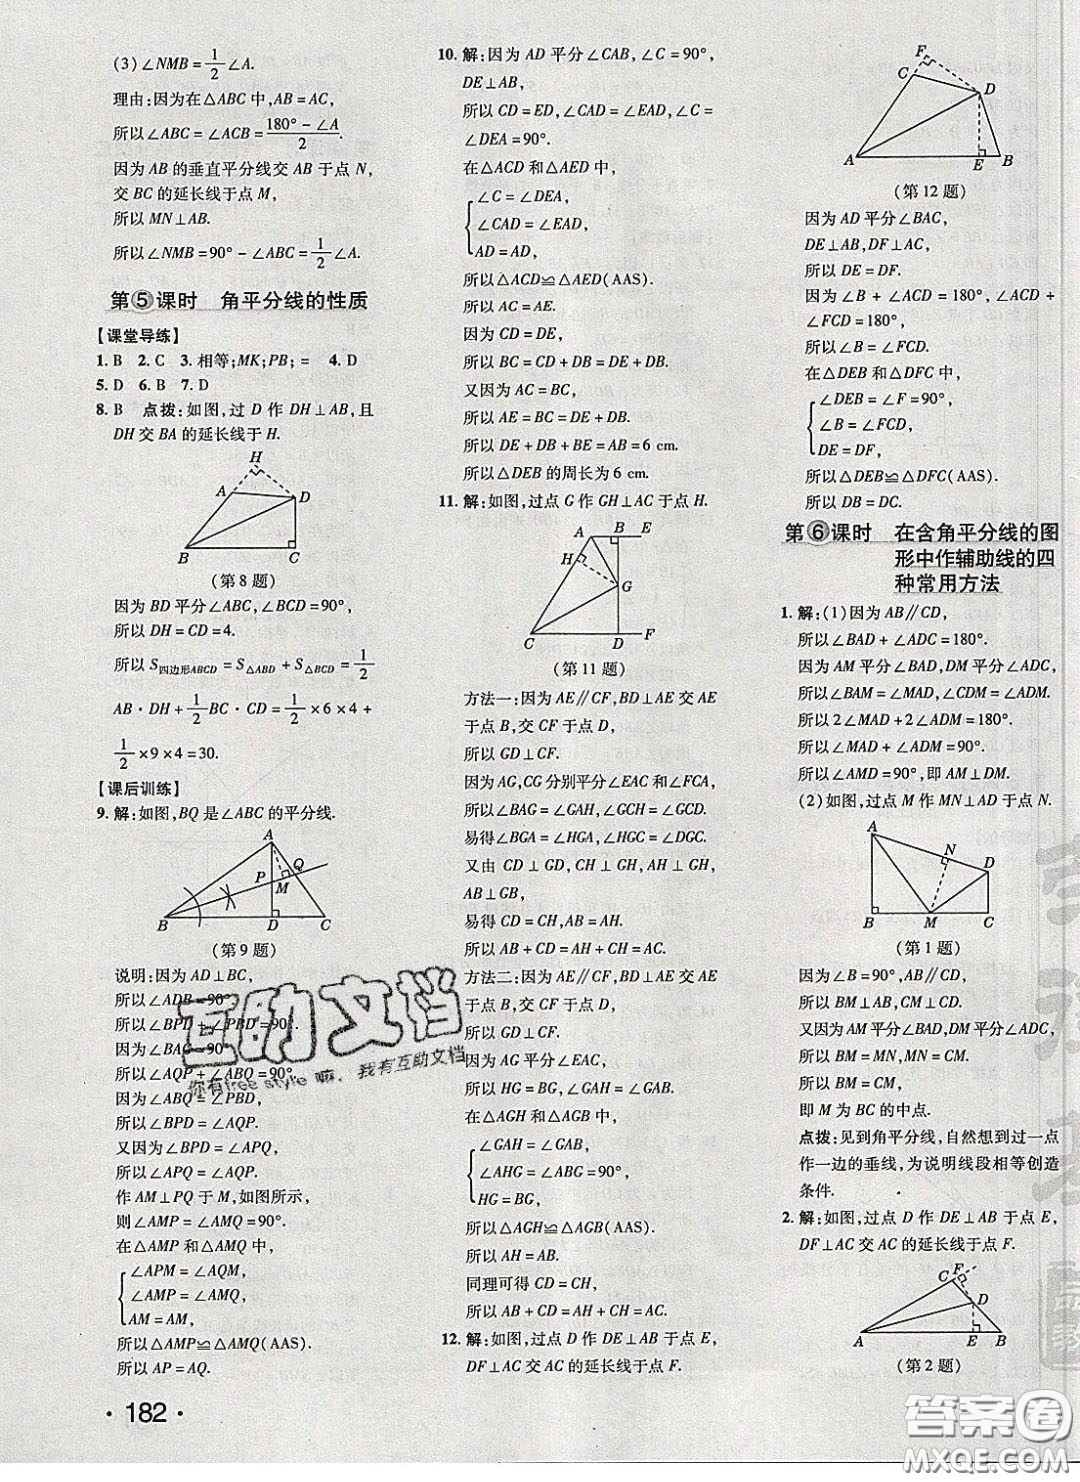 (3)∠NMB=1/2∠A.
理由:因为在△ABC中,AB=AC,
所以∠ABC=∠ACB=(180°-∠A)/2.
因为AB的垂直平分线交AB于点N,
交BC的延长线于点M,
所以MN⊥AB.
所以∠NMB=90°-∠ABC=1/2∠A.
第⑤课时 角平分线的性质
【课堂导练】
1. B 2. C 3. 相等;MK;PB;= 4. D
5. D 6. B 7. D
8. B 点拨:如图,过D作DH⊥AB,且
DH交BA的延长线于H.
H
A
D
B
C
(第8题)
因为BD平分∠ABC,∠BCD=90°,
所以DH=CD=4.
所以S四边形ABCD=S△ABD+S△BCD=1/2
AB·DH+1/2BC·CD=1/2×6×4+
1/2×9×4=30.
【课后训练】
9. 解:如图,BQ是∠ABC的平分线.
A
P
Q
M
B
D
C
(第9题)
说明:因为AD⊥BC,
所以∠ADB=90°,
所以∠BPD+∠PBD=90°.
因为∠BAC=90°,
所以∠AQP+∠ABQ=90°.
因为∠ABQ=∠PBD,
所以∠BPD=∠AQP.
又因为∠BPD=∠APQ,
所以∠APQ=∠AQP.
作AM⊥PQ于M,如图所示,
则∠AMP=∠AMQ=90°.
在△AMP和△AMQ中,
∠APM=∠AQM,
∠AMP=∠AMQ,
AM=AM,
所以△AMP≌△AMQ(AAS).
所以AP=AQ.
·182·
10. 解:因为AD平分∠CAB,∠C=90°,
DE⊥AB,
所以CD=ED,∠CAD=∠EAD,∠C=
∠DEA=90°.
在△ACD和△AED中,
∠C=∠DEA,
∠CAD=∠EAD,
AD=AD,
所以△ACD≌△AED(AAS).
所以AC=AE.
因为CD=DE,
所以BC=CD+DB=DE+DB.
又因为AC=BC,
所以AE=BC=DE+DB.
所以DE+DB+BE=AB=6 cm.
所以△DEB的周长为6 cm.
11. 解:如图,过点G作GH⊥AC于点H.
A
B
E
H
G
C
D
F
(第11题)
方法一:因为AE∥CF,BD⊥AE交AE
于点B,交CF于点D,
所以GD⊥CF.
因为AG,CG分别平分∠EAC和∠FCA,
所以∠BAG=∠GAH,∠GCH=∠GCD.
易得∠BGA=∠HGA,∠HGC=∠DGC.
又由CD⊥GD,CH⊥GH,AH⊥GH,
AB⊥GB,
易得CD=CH,AH=AB.
所以AB+CD=AH+CH=AC.
方法二:因为AE∥CF,BD⊥AE交AE
于点B,交CF于点D,
所以GD⊥CF.
因为AG平分∠EAC,
所以HG=BG,∠GAH=∠GAB.
在△AGH和△AGB中,
∠GAH=∠GAB,
∠AHG=∠ABG=90°,
HG=BG,
所以△AGH≌△AGB(AAS).
所以AH=AB.
同理可得CD=CH.
所以AB+CD=AH+CH=AC.
12. 解:如图,过点D作DE⊥AB于点E,
DF⊥AC交AC的延长线于点F.
F
C
D
A
E
B
(第12题)
因为AD平分∠BAC,
DE⊥AB,DF⊥AC,
所以DE=DF.
因为∠B+∠ACD=180°,∠ACD+
∠FCD=180°,
所以∠B=∠FCD.
在△DEB和△DFC中,
∠DEB=∠F=90°,
∠B=∠FCD,
DE=DF,
所以△DEB≌△DFC(AAS).
所以DB=DC.
第⑥课时 在含角平分线的图
形中作辅助线的四
种常用方法
1. 解:(1)因为AB∥CD,
所以∠BAD+∠ADC=180°.
因为AM平分∠BAD,DM平分∠ADC,
所以∠BAM=∠MAD,∠CDM=∠ADM.
所以2∠MAD+2∠ADM=180°.
所以∠MAD+∠ADM=90°.
所以∠AMD=90°,即AM⊥DM.
(2)如图,过点M作MN⊥AD于点N.
A
N
D
B
M
C
(第1题)
因为∠B=90°,AB∥CD,
所以BM⊥AB,CM⊥CD.
又因为AM平分∠BAD,DM平分∠ADC,
所以BM=MN,MN=CM.
所以BM=CM.
即M为BC的中点.
点拨:见到角平分线,自然想到过一点
作一边的垂线,为说明线段相等创造
条件.
2. 解:如图,过点D作DE⊥AB于点E,
DF⊥AC交AC的延长线于点F.
F
C
D
A
E
B
(第2题)
互助文档
你有free style嘛,我有互助文档
答案圈
MXQE.COM